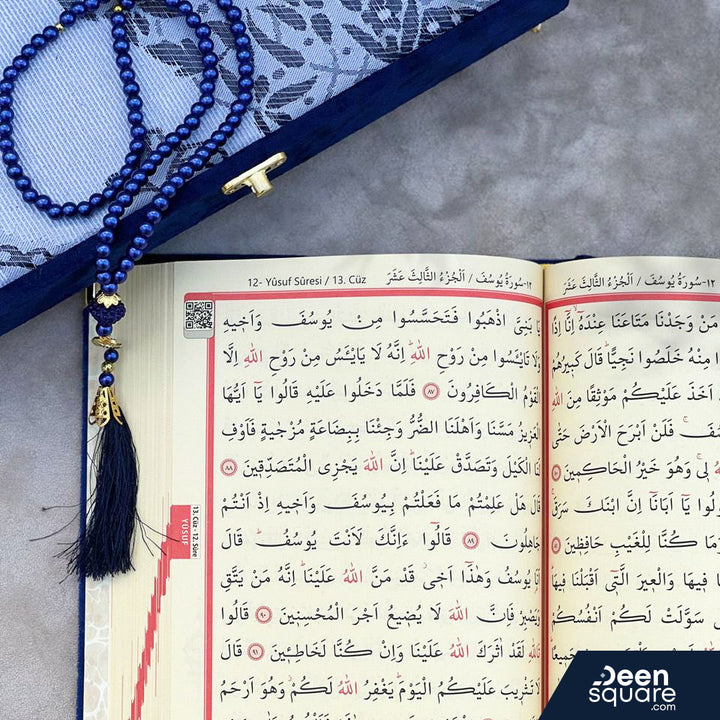 12- Yûsuf Sûresi / 13. Cüz
١٢-سُورَةُ يُوسُفَ / اَلْجُزْءُ الثَّالِثَ عَشَرَ
يَا بَنِيَّ اذْهَبُوا فَتَحَسَّسُوا مِنْ يُوسُفَ وَاَخ۪يهِ
وَلَا تَايْـَٔسُوا مِنْ رَوْحِ اللّٰهِۜ اِنَّهُ لَا يَايْـَٔسُ مِنْ رَوْحِ اللّٰهِ اِلَّا
الْقَوْمُ الْكَافِرُونَ ﴿٨٧﴾ فَلَمَّا دَخَلُوا عَلَيْهِ قَالُوا يَٓا اَيُّهَا
الْعَز۪يزُ مَسَّنَا وَاَهْلَنَا الضُّرُّ وَجِئْنَا بِبِضَاعَةٍ مُزْجٰيةٍ فَاَوْفِ
لَنَا الْكَيْلَ وَتَصَدَّقْ عَلَيْنَاۜ اِنَّ اللّٰهَ يَجْزِي الْمُتَصَدِّق۪ينَ ﴿٨٨﴾
قَالَ هَلْ عَلِمْتُمْ مَا فَعَلْتُمْ بِيُوسُفَ وَاَخ۪يهِ اِذْ اَنْتُمْ
جَاهِلُونَ ﴿٨٩﴾ قَالُٓوا ءَاِنَّكَ لَاَنْتَ يُوسُفُۜ قَالَ
اَنَا۬ يُوسُفُ وَهٰذَٓا اَخ۪ي قَدْ مَنَّ اللّٰهُ عَلَيْنَاۜ اِنَّهُ مَنْ يَتَّقِ
وَيَصْبِرْ فَاِنَّ اللّٰهَ لَا يُض۪يعُ اَجْرَ الْمُحْسِن۪ينَ ﴿٩٠﴾ قَالُوا
تَاللّٰهِ لَقَدْ اٰثَرَكَ اللّٰهُ عَلَيْنَا وَاِنْ كُنَّا لَخَاطِـ۪ٔينَ ﴿٩١﴾ قَالَ
لَا تَثْر۪يبَ عَلَيْكُمُ الْيَوْمَۜ يَغْفِرُ اللّٰهُ لَكُمْۘ وَهُوَ اَرْحَمُ
13. Cüz - 12. Sûre
YÛSUF
١٢-سُورَةُ يُوسُفَ / اَلْجُزْءُ الثَّالِثَ عَشَرَ
مَنْ وَجَدْنَا مَتَاعَنَا عِنْدَهُٓۙ اِنَّٓا اِذًا
مِنْهُ خَلَصُوا نَجِيًّاۜ قَالَ كَب۪يرُهُمْ
اَخَذَ عَلَيْكُمْ مَوْثِقًا مِنَ اللّٰهِ
فَلَنْ اَبْرَحَ الْاَرْضَ حَتّٰى
اللّٰهُ ل۪يۚ وَهُوَ خَيْرُ الْحَاكِم۪ينَ
يَٓا اَبَانَٓا اِنَّ ابْنَكَ سَرَقَۚ
مَا كُنَّا لِلْغَيْبِ حَافِظ۪ينَ
ف۪يهَا وَالْع۪يرَ الَّت۪ٓي اَقْبَلْنَا ف۪يهَاۜ
سَوَّلَتْ لَكُمْ اَنْفُسُكُمْ
Deen
square
.com